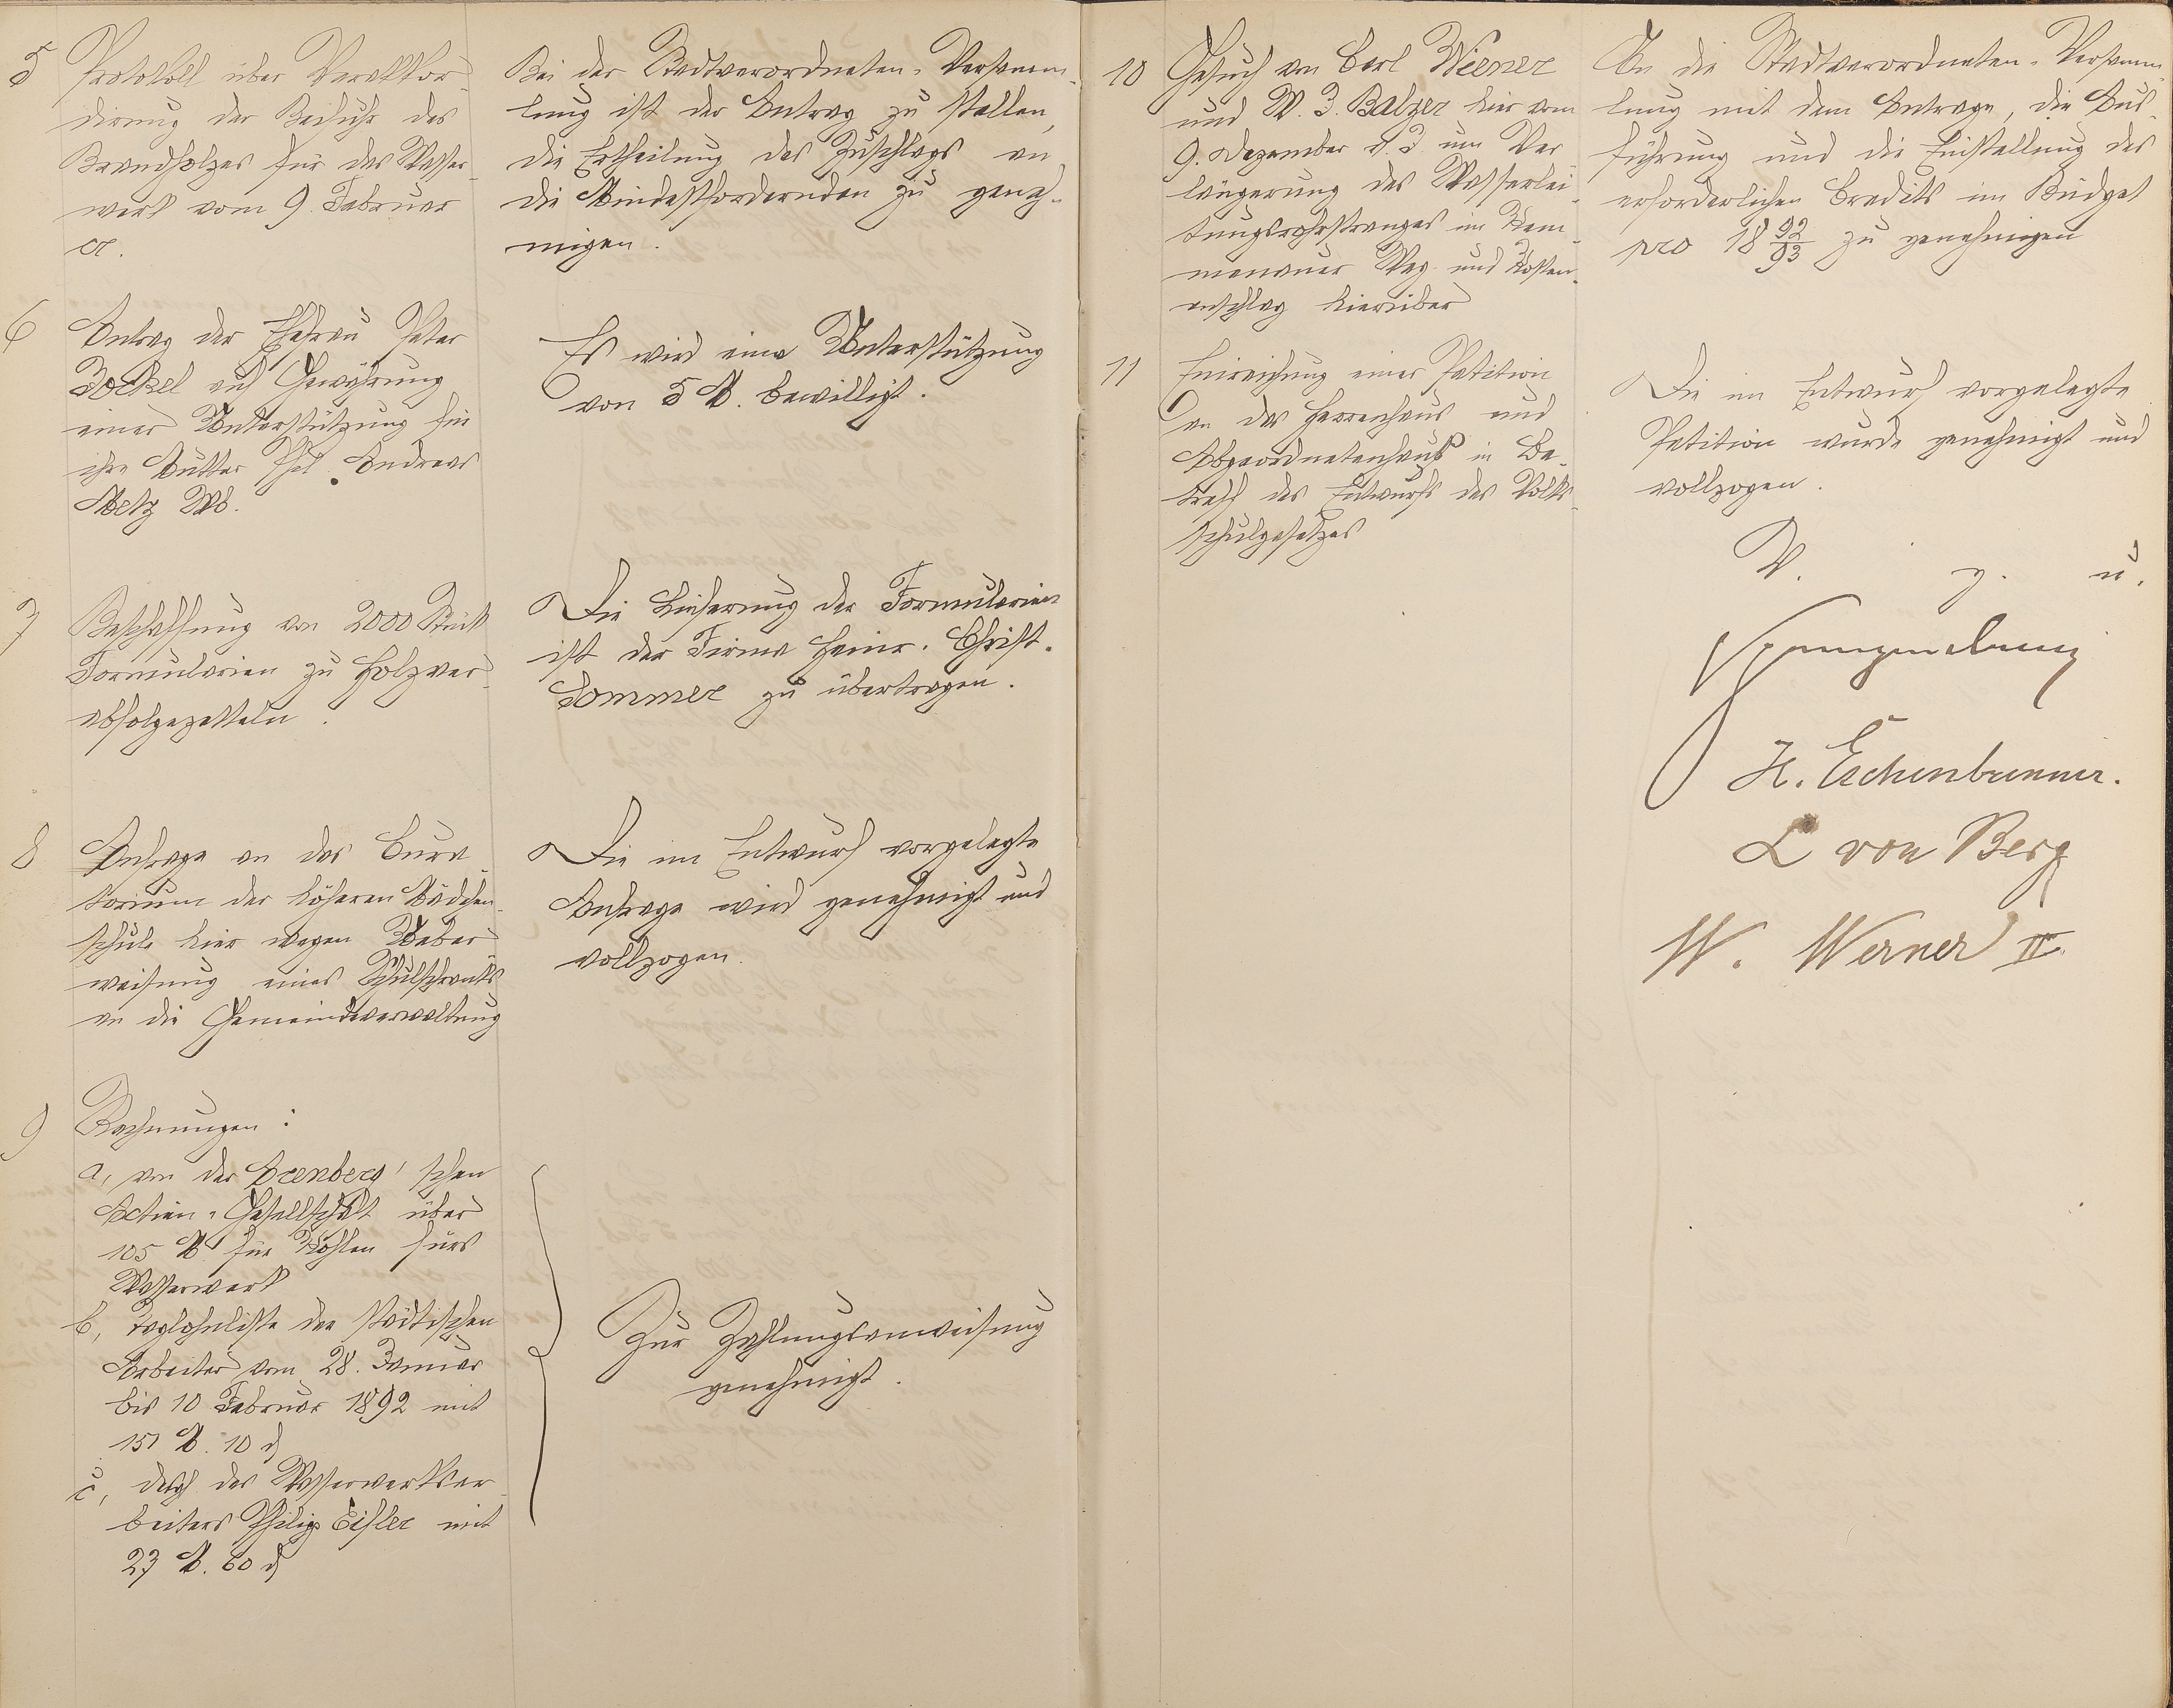 5
Protokoll über Verakkor-
dirung der Beifuhr des
Brandholzes für das Wasser-
werk vom 9. Februar
cr.
Bei der Stadtverordneten-Versamm-
lung ist der Antrag zu stellen,
die Ertheilung des Zuschlags an
die Mindestfordernden zu geneh-
migen.
6
Antrag der Ehefrau Peter
Jockel auf Gewährung
einer Unterstützung für
ihre Mutter Phil. Andreas
Metz Wb.
Es wird eine Unterstützung
von 5 M. bewilligt.
7
Beschaffung von 2000 Stück
Formularien zu Holzver-
abfolgezetteln.
Die Lieferung der Formularien
ist der Firma Heinr. Christ.
Sommer zu übertragen.
8
Anfrage an das Cura-
torium der höheren Mädchen-
schule hier wegen Ueber-
weisung eines Schulschranks
an die Gemeindeverwaltung
Die im Entwurf vorgelegte
Anfrage wird genehmigt und
vollzogen.
9
Rechnungen:
a, von der Arenberg'schen
Actien-Gesellschaft über
105 M für Kohlen fürs
Wasserwerk
b, Taglohnliste der städtischen
Arbeiter vom 28. Januar
bis 10 Februar 1892 mit
151 M. 10 d
c, desgl des Wasserwerksar-
beiters Philip Eisler mit
27 M. 60 d
Zur Zahlungsanweisung
genehmigt.
10
Gesuch von Carl Wiener
und W. J. Balzer hier vom
9. Dezember v. J. um Ver-
längerung des Wasserlei-
tungsrohrstranges im Kem-
menauer Weg und Kosten-
anschlag hierüber
An die Stadtverordneten-Versamm-
lung mit dem Antrage, die Aus-
führung und die Einstellung des
erforderlichen Credits im Budget
pro 18 92/93 zu genehmigen
11
Einreichung einer Petition
an das Herrenhaus und
Abgeordnetenhaus in Be-
treff des Entwurfs des Volks-
schulgesetzes
Die im Entwurf vorgelegte
Petition wurde genehmigt und
vollzogen.
V. g. u.
H. Eschenbrenner.
L von Berg
W. Werner II.